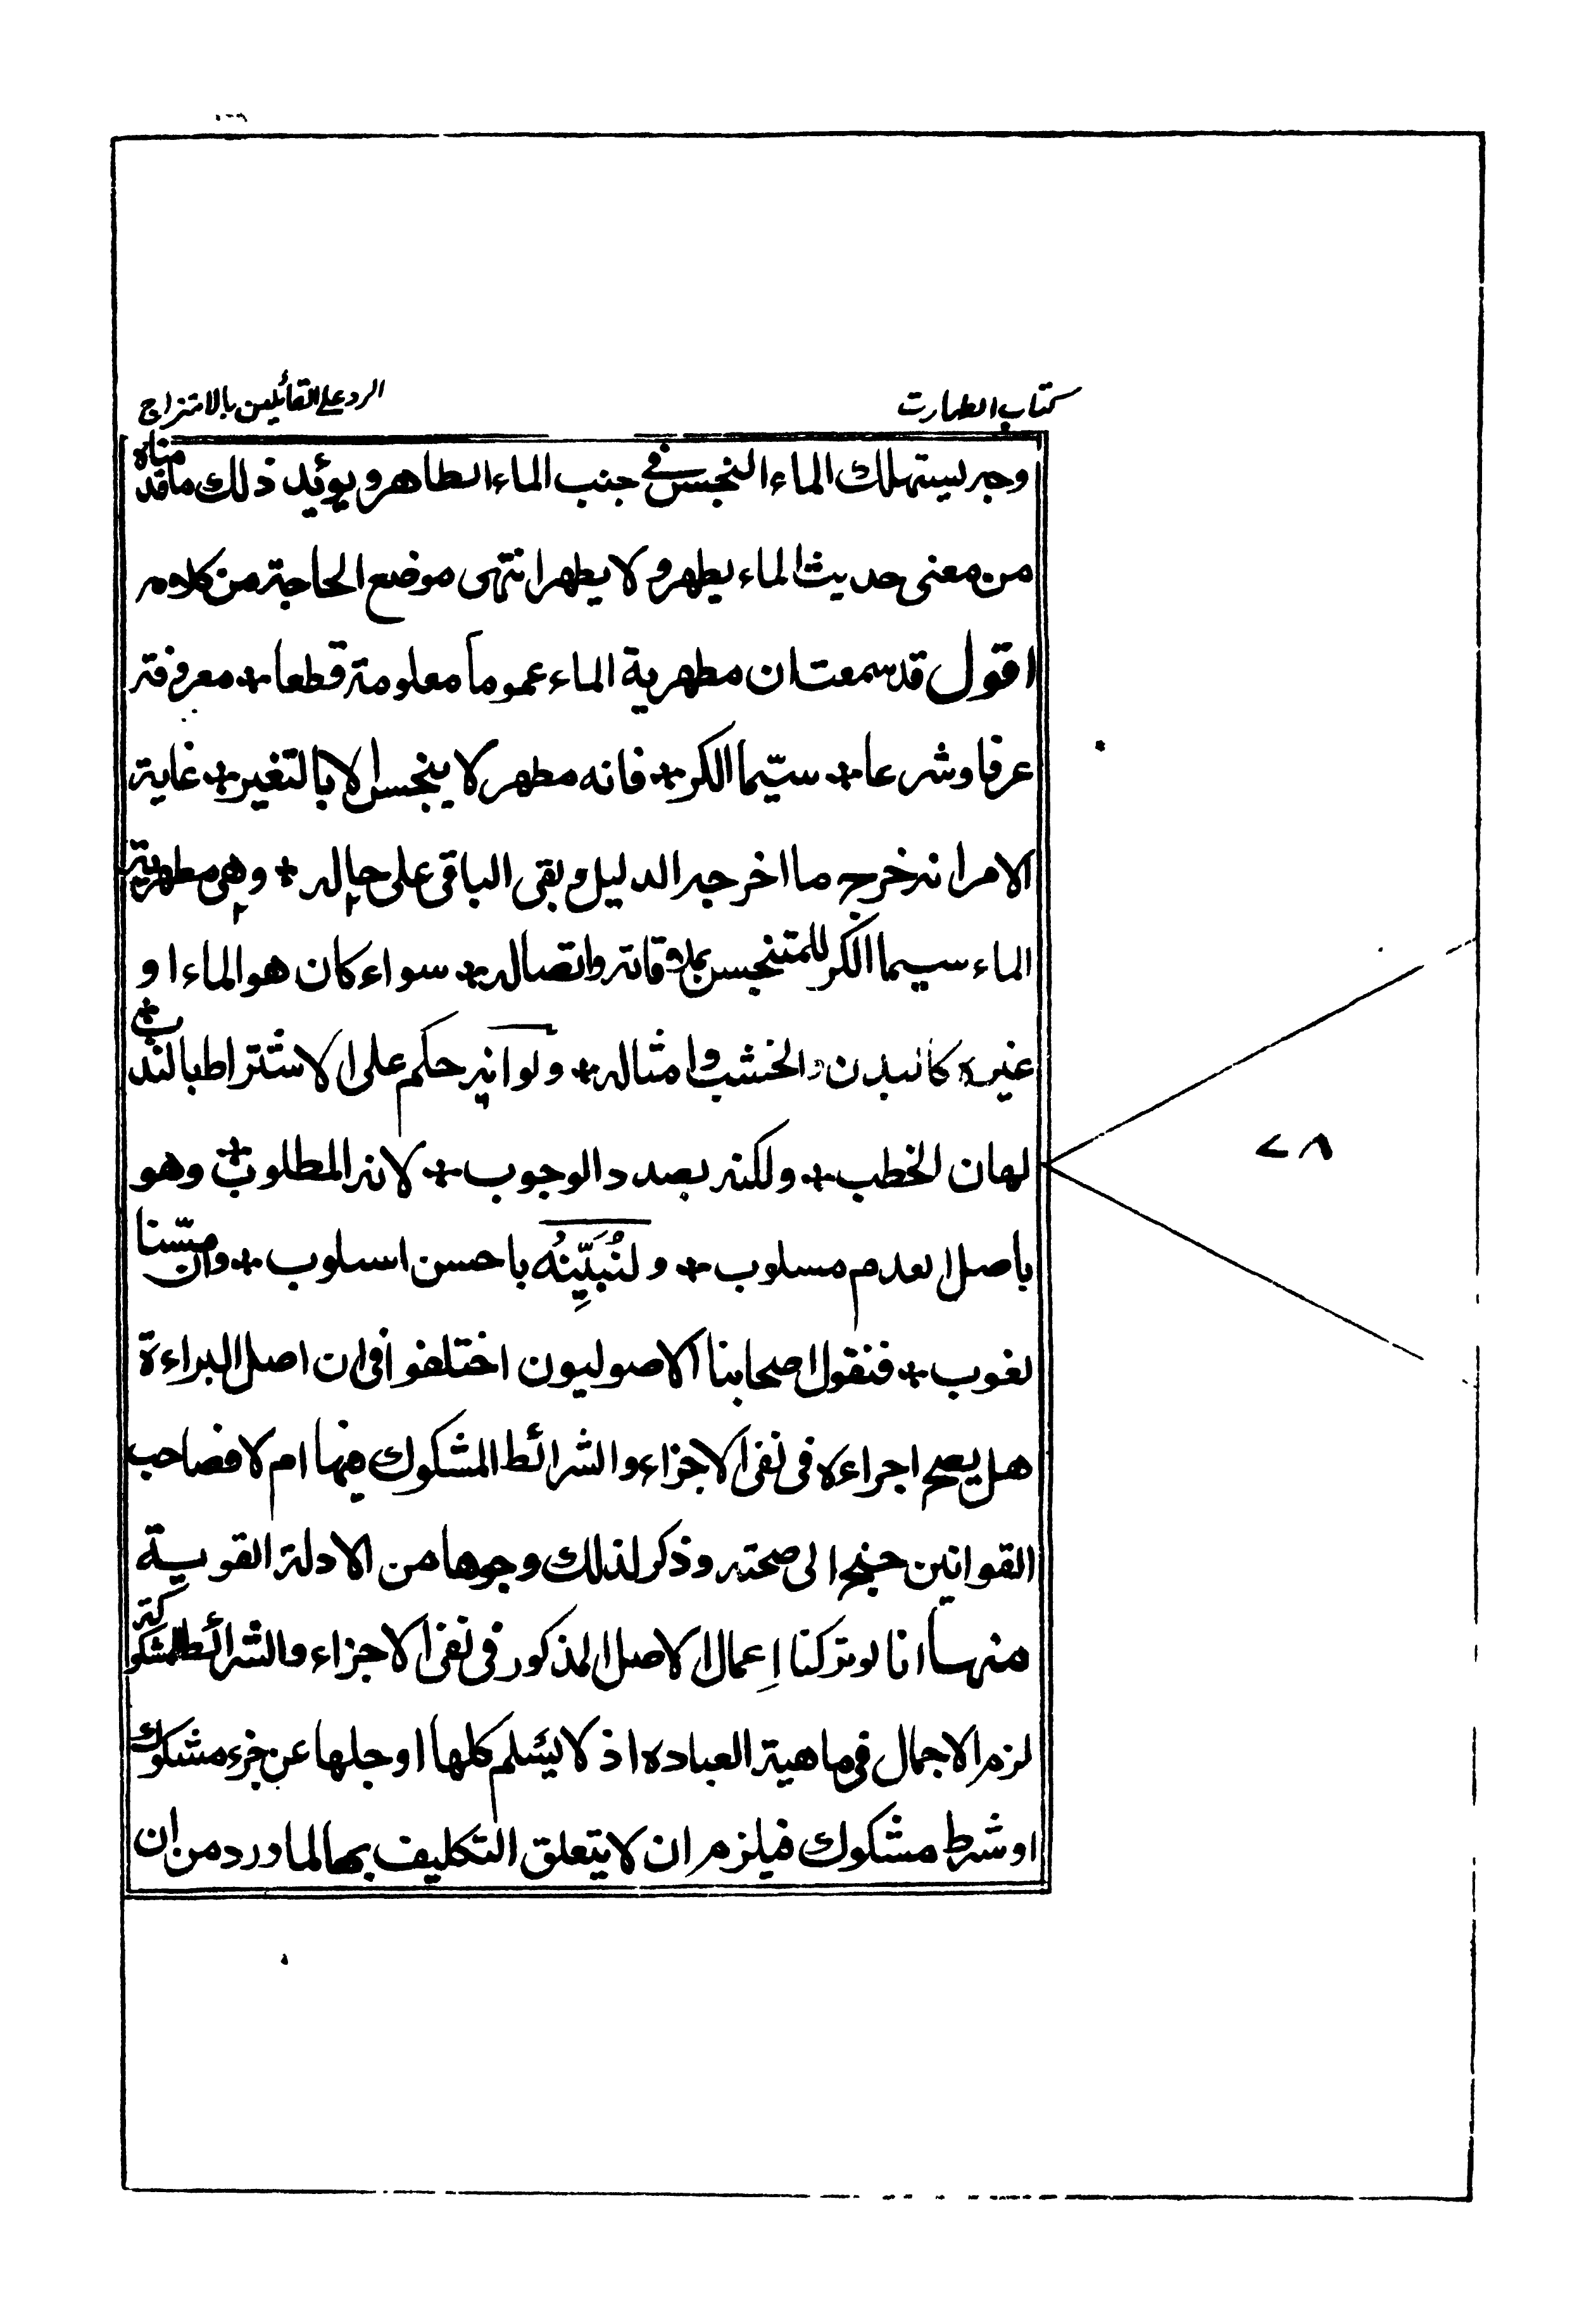 كتاب الطهارت
الرد على القائلين بالامتزاج
وجه يستهلك الماء النجس في جنب الماء الطاهر ويؤيد ذلك ما قدمناه
من معنى حديث الماء يطهر ولا يطهر انتهى موضع الحاجة من كلامه
اقول قد سمعت ان مطهرية الماء عموماً معلومة قطعاً + معروفة
عرفا وشرعا + سيّما الكر + فانه مطهر لا ينجس الا بالتغير + غاية
الامر انه خرج ما اخرجه الدليل وبقى الباقى على حاله + وهى مطهرية
الماء سيما الكر للمتنجس بملاقاته واتصاله + سواء كان هو الماء او
غيره كالبدن والخشب وامثاله + ولو انه حكم على الاشتراط بالندب +
لهان الخطب + ولكنه بصدد الوجوب + لانه المطلوب + وهو
باصل العدم مسلوب + ولنُبَيِّنُه باحسن اسلوب + وان مسّنا
لغوب + فنقول اصحابنا الاصوليون اختلفوا فى ان اصل البراءة
هل يصح اجراءه فى نفى الاجزاء والشرائط المشكوك فيها ام لا فصاحب
القوانين جنح الى صحته وذكر لذلك وجوها من الادلة القوية
منها انا لو تركنا اعمال الاصل المذكور فى نفى الاجزاء والشرائط المشكوكة
لزم الاجمال فى ماهية العباده اذ لا يسلم كلها او جلها عن جزء مشكوك
او شرط مشكوك فيلزم ان لا يتعلق التكليف بها لما ورد من ان
٧٨